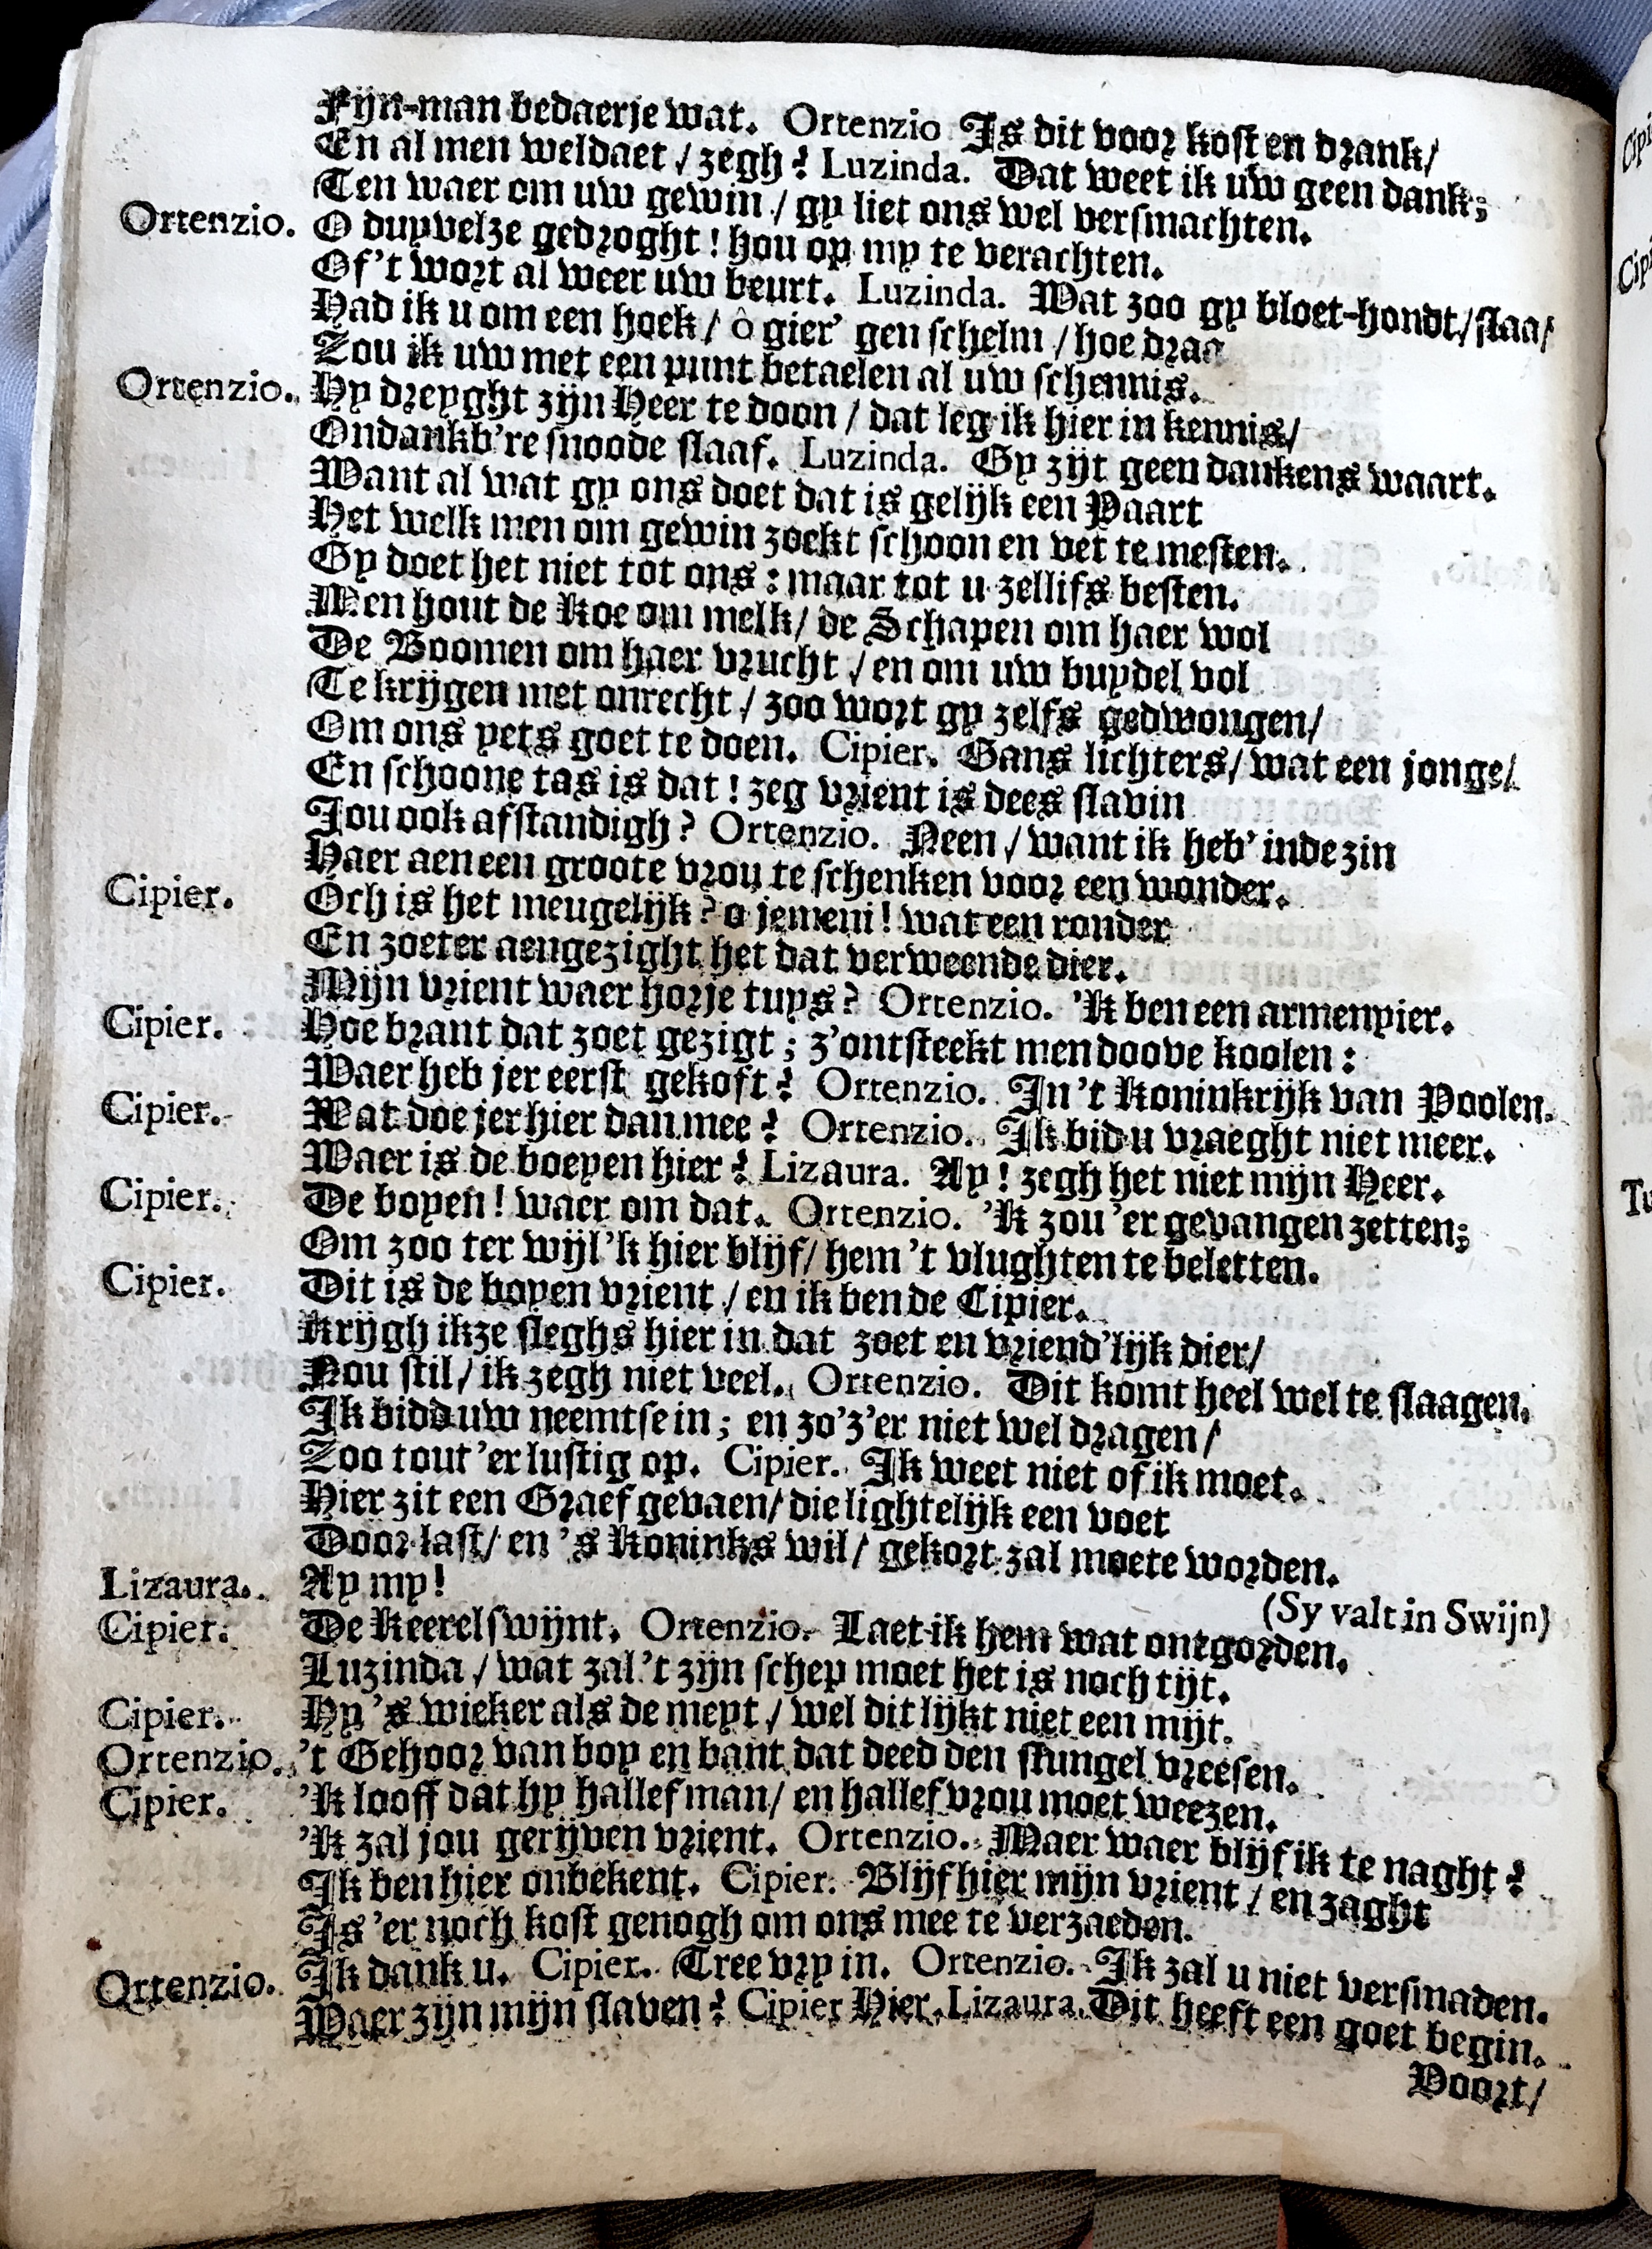 Fijn-man bedaerje wat. Ortenzio Is dit voor kost en drank/
En al men weldaet / zegh? Luzinda. Dat weet ik uw geen dank;
Ten waer om uw gewin / gy liet ons wel versmachten.
Ortenzio. O duyvelze gedroght! hou op my te verachten.
Of't wort al weer uw beurt. Luzinda. Wat zoo gy bloet-hondt / slaa/
Had ik u om een hoek / ô gier' gen schelm / hoe draa
Zou ik uw met een punt betaelen al uw schennis.
Ortenzio. Hy dreyght zijn Heer te doon / dat leg ik hier in kennis/
Ondankb're snoode slaaf. Luzinda. Gy zijt geen dankens waart.
Want al wat gy ons doet dat is gelijk een Paart
Het welk men om gewin zoekt schoon en vet te mesten.
Gy doet het niet tot ons: maar tot u zellifs besten.
Men hout de Koe om melk/ de Schapen om haer wol
De Boomen om haer vrucht / en om uw buydel vol
Te krijgen met onrecht / zoo wort gy zelfs gedwongen/
Om ons yets goet te doen. Cipier. Gans lichters/ wat een jonge/
En schoone tas is dat! zeg vrient is dees slavin
Jou ook afstandigh? Ortenzio. Neen / want ik heb' inde zin
Haer aen een groote vrou te schenken voor een wonder.
Cipier. Och is het meugelijk? o jemeni! wat een ronder
En zoeter aengezight het dat verweende dier.
Mijn vrient waer horje tuys? Ortenzio. 'K ben een armen pier.
Cipier. Hoe brant dat zoet gezigt; z'ontsteekt men doove koolen:
Waer heb jer eerst gekoft? Ortenzio. In 't Koninkrijk van Poolen.
Cipier. Wat doe jer hier dan mee? Ortenzio. Ik bid u vraeght niet meer.
Waer is de boeyen hier? Lizaura. Ay! zegh het niet mijn Heer.
Cipier. De boyen! waer om dat. Ortenzio. 'K zou 'er gevangen zetten;
Om zoo ter wijl 'k hier blijf/ hem 't vlughten te beletten.
Cipier. Dit is de boyen vrient / en ik ben de Cipier.
Krijgh ikze sleghs hier in dat zoet en vriend'lijk dier/
Nou stil / ik zegh niet veel. Ortenzio. Dit komt heel wel te slaagen.
Ik bidd uw neemtse in; en zo'z'er niet wel dragen /
Zoo tout 'er lustig op. Cipier. Ik weet niet of ik moet.
Hier zit een Graef gevaen/ die lightelijk een voet
Door last/ en 's Koninks wil/ gekort zal moete worden.
Lizaura. Ay my!
(Sy valt in Swijn)
Cipier. De Keerel swijnt. Ortenzio. Laet ik hem wat ontgorden.
Luzinda / wat zal 't zijn schep moet het is noch tijt.
Cipier. Hy 's wieker als de meyt / wel dit lijkt niet een mijt.
Ortenzio. 't Gehoor van boy en bant dat deed den slungel vreesen.
Cipier. 'K looff dat hy hallef man/ en hallef vrou moet weezen.
'K zal jou gerijven vrient. Ortenzio. Maer waer blijf ik te naght?
Ik ben hier onbekent. Cipier. Blijf hier mijn vrient / en zaght
Is 'er noch kost genogh om ons mee te verzaeden.
Ortenzio. Ik dank u. Cipier. Tree vry in. Ortenzio. Ik zal u niet versmaden.
Waer zijn mijn slaven? Cipier Hier. Lizaura. Dit heeft een goet begin.
Voort/